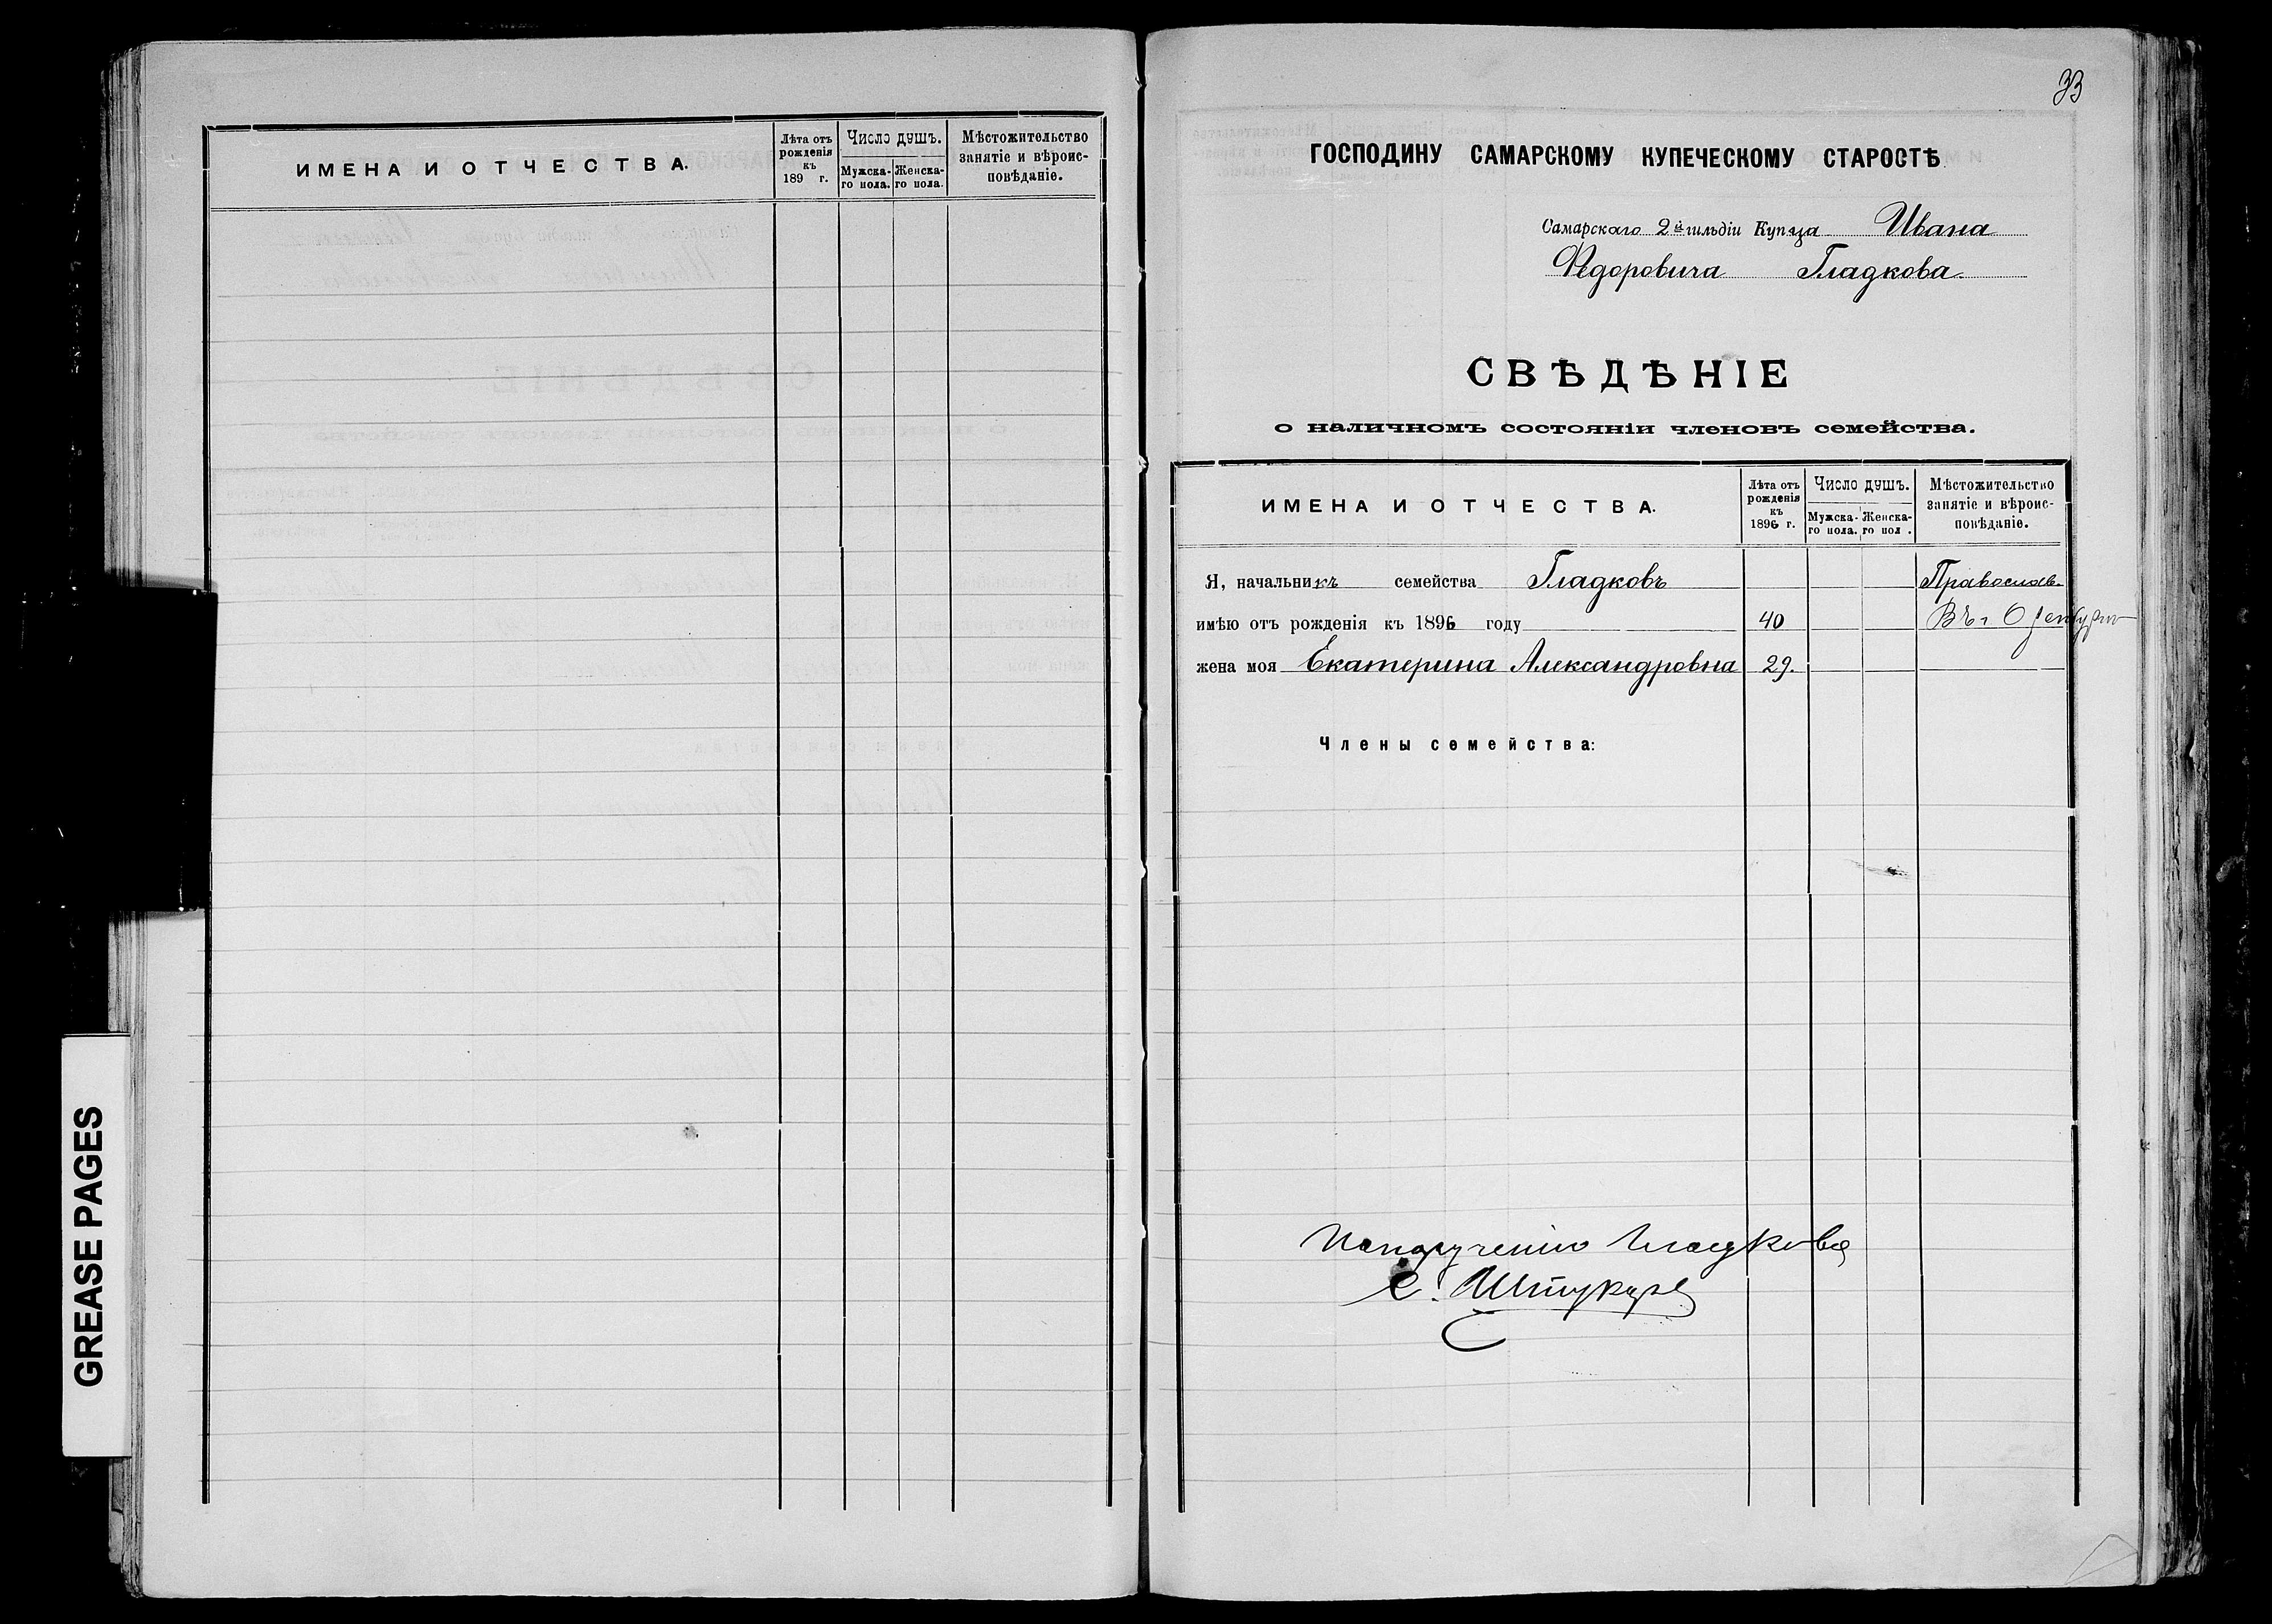 ИМЕНА И ОТЧЕСТВА.
Лѣта отъ рожденія къ 189 г.
Число душъ.
Мужска-го пола.
Женска-го пола.
Мѣстожительство занятіе и вѣроис-повѣданіе.
GREASE PAGES
33
ГОСПОДИНУ САМАРСКОМУ КУПЕЧЕСКОМУ СТАРОСТѢ.
Самарскаго 2й гильдіи Купца Ивана
Федоровича Гладкова.
СВѢДѢНІЕ
о наличномъ состояніи членовъ семейства.
ИМЕНА И ОТЧЕСТВА.
Лѣта отъ рожденія къ 1896 г.
Число душъ.
Мужска-го пола.
Женска-го пол .
Мѣстожительство занятіе и вѣроис-повѣданіе.
Я, начальникъ семейства Гладковъ Православ.
имѣю отъ рожденія къ 1896 году 40 Въ г Оренбург
жена моя Екатерина Александровна 29.
Члены семейства:
По порученію Гладкова